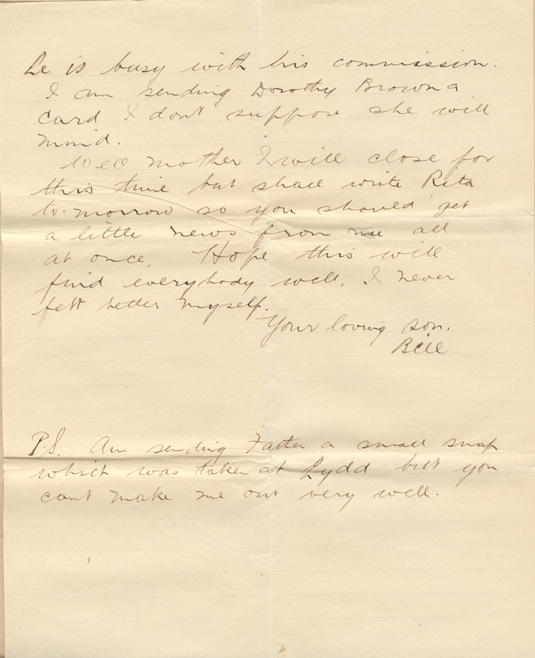 He is busy with his commission.
I am sending Dorothy Brown a
card I dont suppose she will
mind.
Well mother I will close for
this time but shall write Rita
to-morrow so you should get
a little news from me all
at once. Hope this will
find everybody well. I never
felt better myself.
Your loving son.
Bill
P.S. Am sending Father a small snap
which was taken at Lydd but you
cant make me out very well.